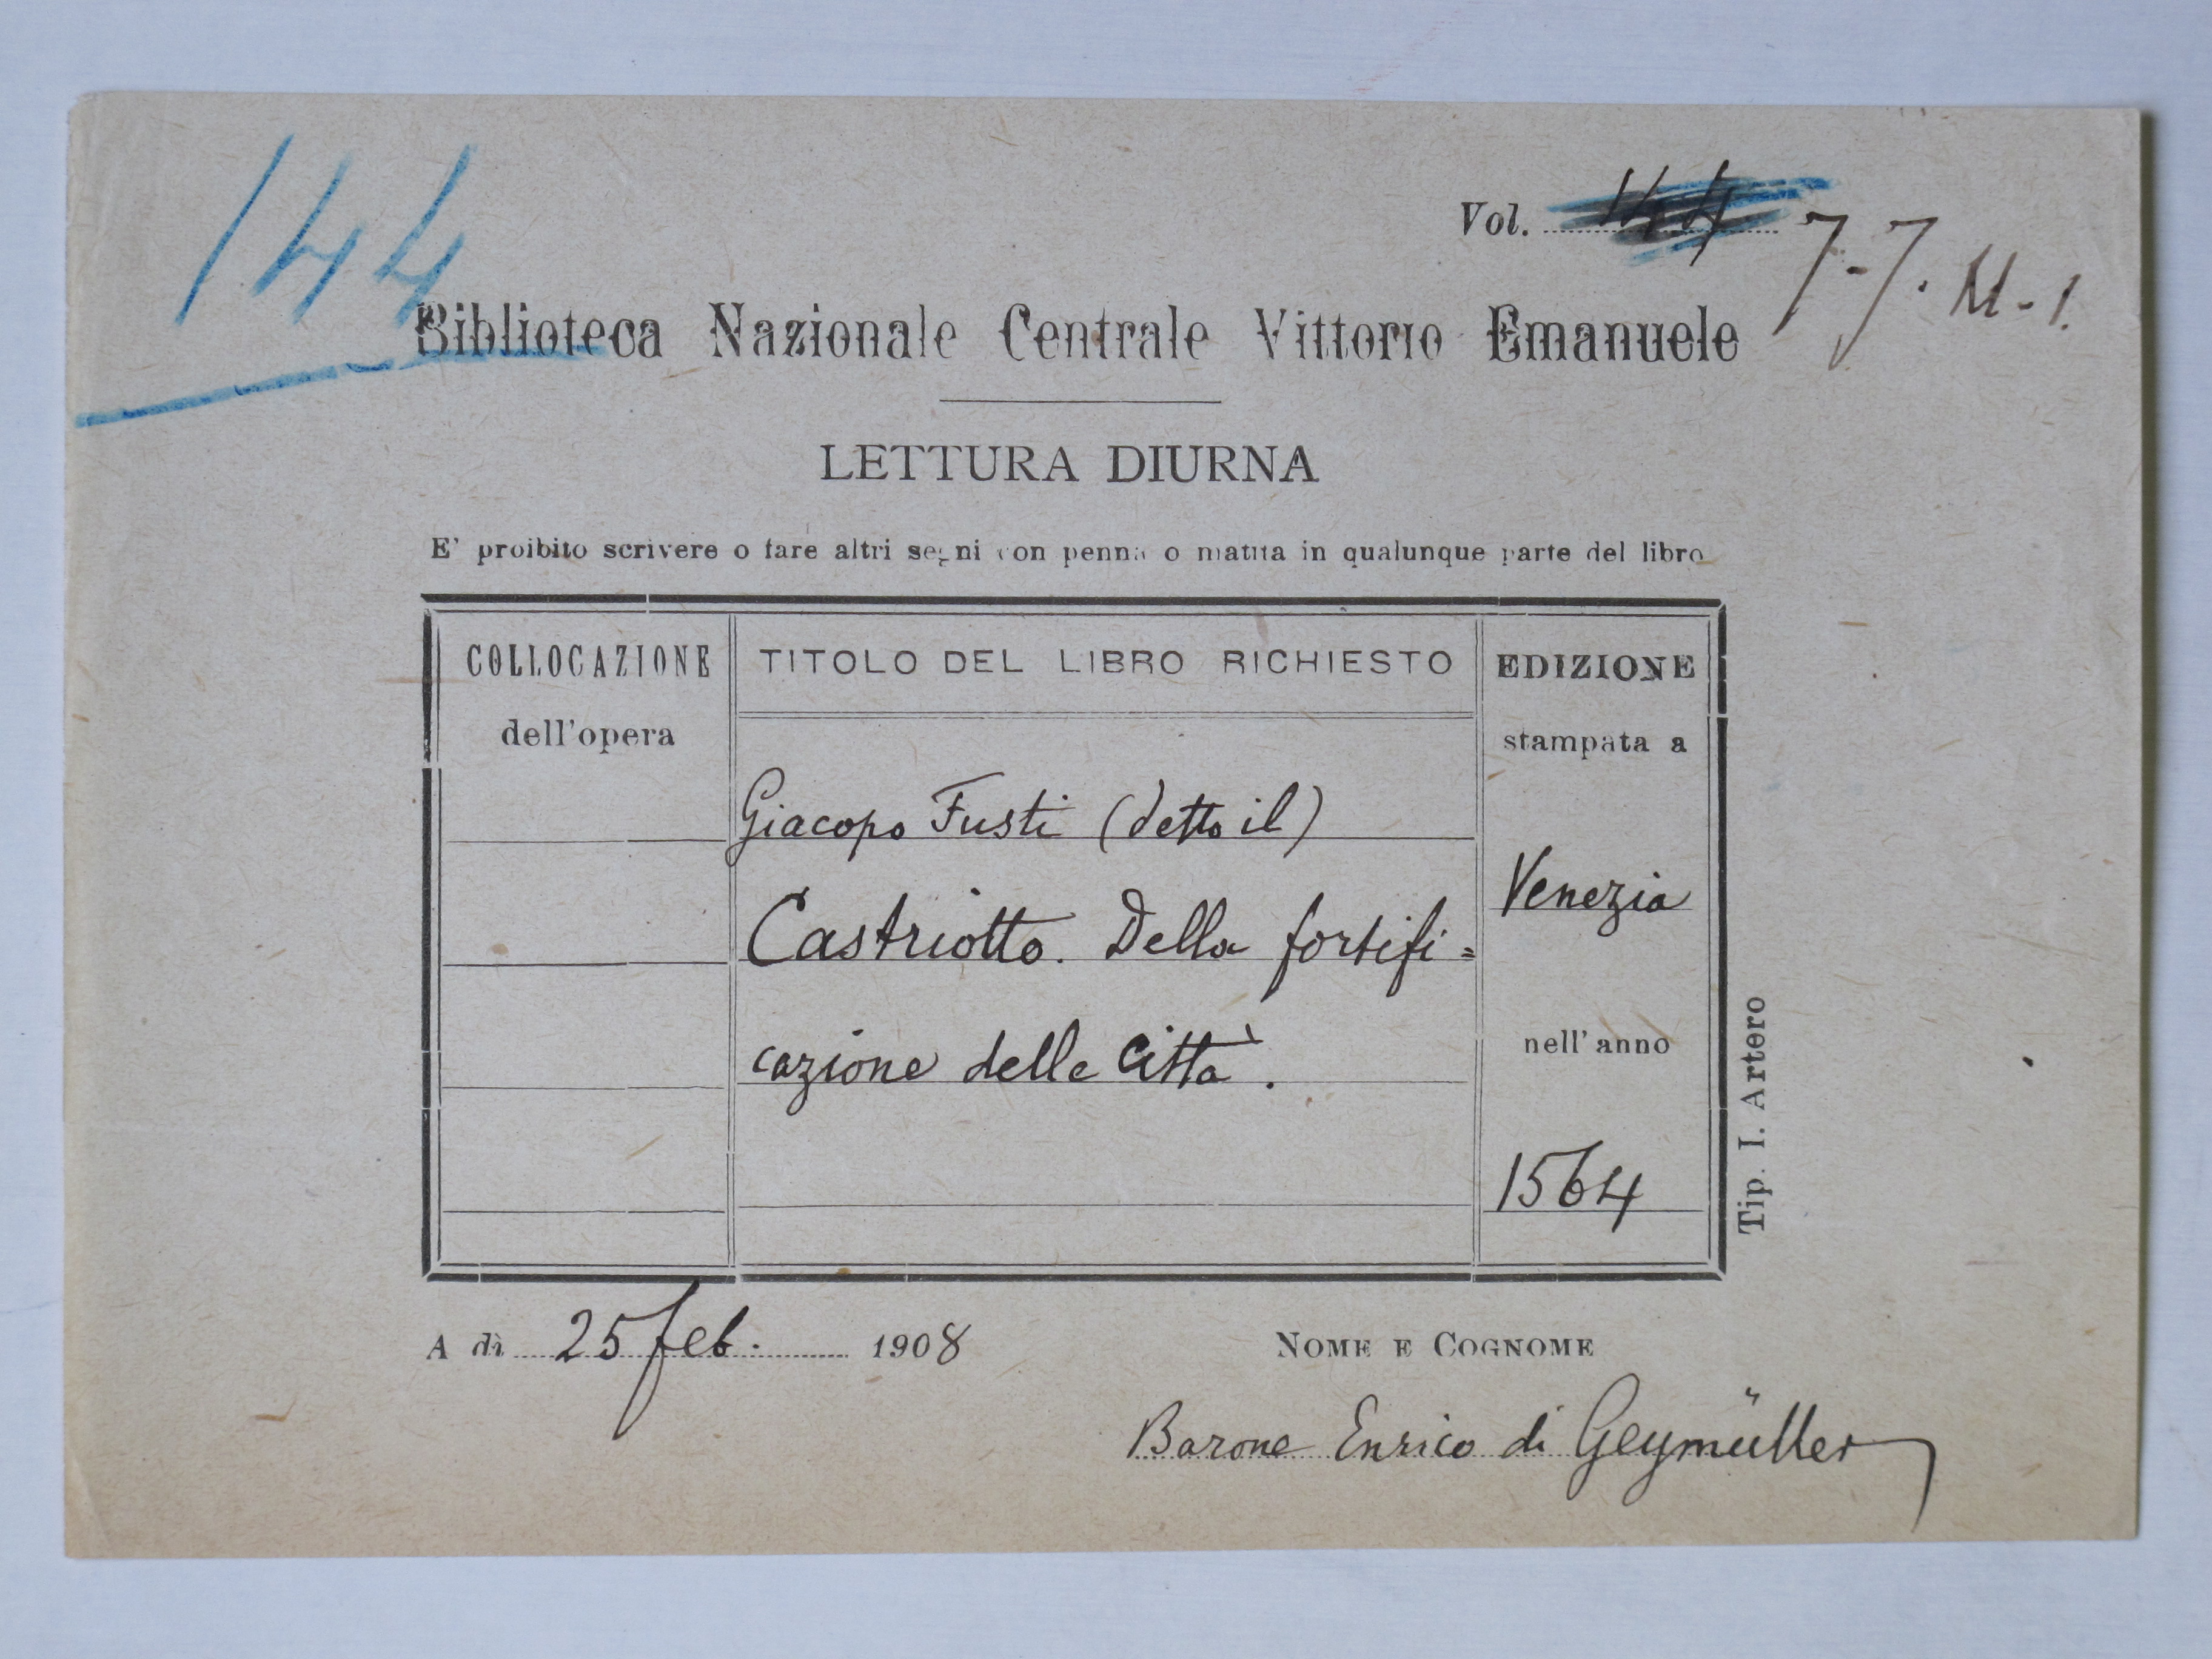 144
Vol. 144 7-7. M-1.
Biblioteca Nazionale Centrale Vittorio Emanuele
LETTURA DIURNA
E' proibito scrivere o fare altri segni con penna o matita in qualunque parte del libro
COLLOCAZIONE
dell'opera
TITOLO DEL LIBRO RICHIESTO
Giacopo Fusti (detto il)
Castriotto. Della fortifi=
cazione delle Città.
EDIZIONE
stampata a
Venezia
nell'anno
1564
Tip. I. Artero
A dì 25 feb. 1908
NOME E COGNOME
Barone Enrico di Geymüller